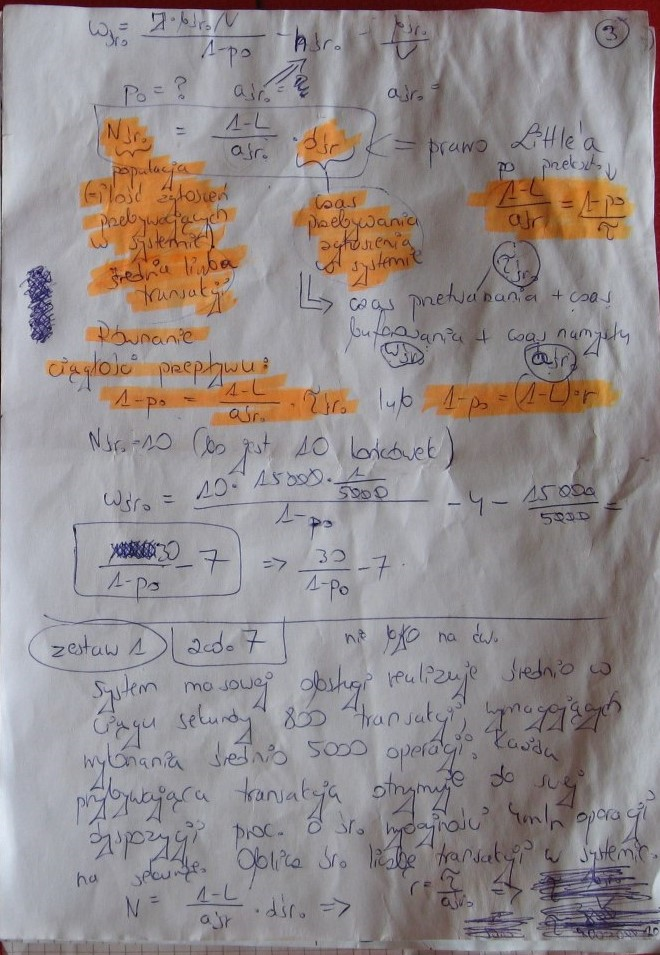 wśr. = Z·pśr./V / 1-p0 - aśr. - pśr./V
3
p0 = ? aśr. = aśr. =
Nśr. = 1-L / aśr. · dśr <= prawo Little'a
populacja
(=ilość zgłoszeń
przebywających
w systemie)
średnia liczba
transakcji
czas
przebywania
zgłoszenia
w systemie
po przekszt.
1-L / aśr = 1-p0 / τ
τśr.
czas przetwarzania + czas
buforowania + czas namysłu
wśr. aśr.
Równanie
ciągłości przepływu:
1-p0 = 1-L / aśr. · τśr. lub 1-p0 = (1-L)·r
Nśr.=10 (bo jest 10 końcówek)
wśr. = 10· 15000 · 1/5000 / 1-p0 - 4 - 15000/5000 =
30 / 1-p0 - 7 => 30 / 1-p0 - 7
zestaw 1 zad. 7 nie było na ćw.
System masowej obsługi realizuje średnio w
ciągu sekundy 800 transakcji, wymagających
wykonania średnio 5000 operacji. Każda
przybywająca transakcja otrzymuje do swej
dyspozycji proc. o śr. wydajności 4mln operacji
na sekundę. Oblicz śr. liczbę transakcji w systemie.
N = 1-L / aśr · dśr. => r = τ / aśr. =>